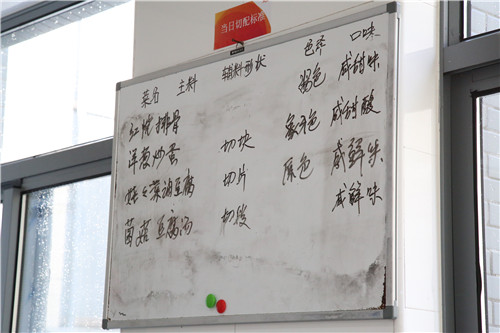 当日切配标准
菜名 主料 辅料形状 色泽 口味
红烧排骨 褐色 咸甜味
洋葱炒蛋 切块 色 咸甜酸
娃々菜油豆腐 切片 原色 咸鲜味
菌菇豆腐汤 切段 咸鲜味